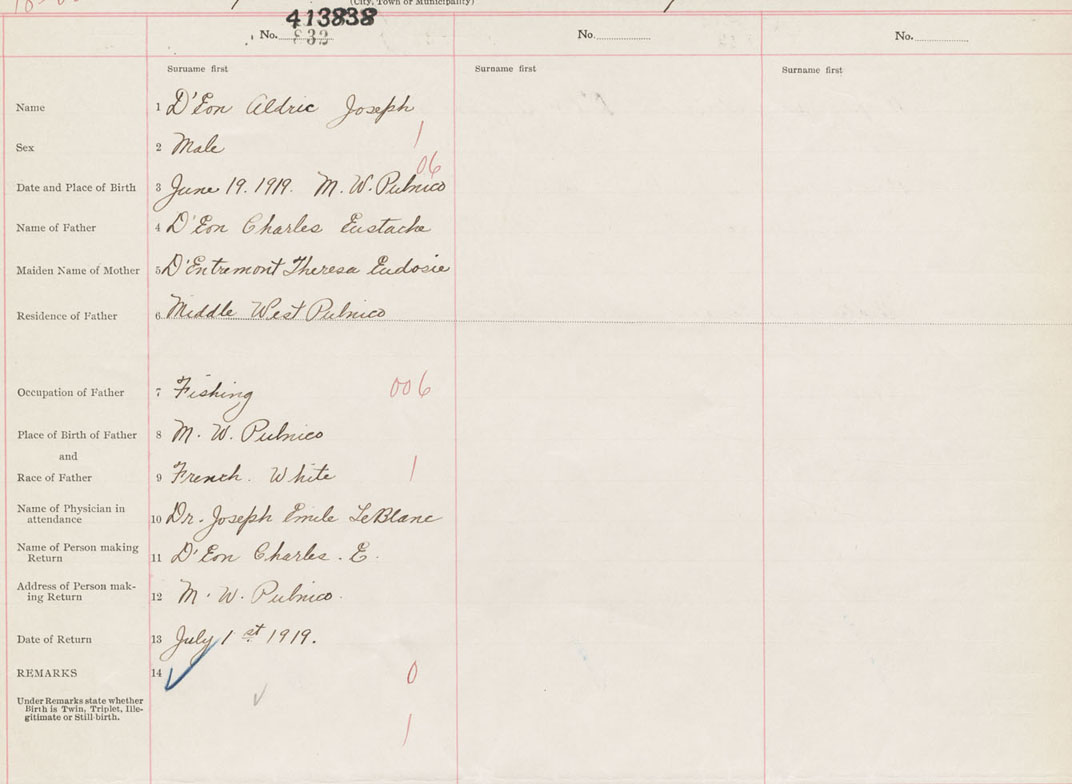 (City, Town or Municipality)
413838
No. 832 No. No.
Surname first Surname first Surname first
Name 1 D'Eon Aldric Joseph
1
Sex 2 Male
06
Date and Place of Birth 3 June 19. 1919. M. W. Pubnico
Name of Father 4 D'Eon Charles Eustache
Maiden Name of Mother 5 D'Entremont Theresa Eudosie
Residence of Father 6 Middle West Pubnico
Occupation of Father 7 Fishing 006
Place of Birth of Father 8 M. W. Pubnico
and
Race of Father 9 French. White 1
Name of Physician in
attendance 10 Dr. Joseph Emile LeBlanc
Name of Person making
Return 11 D'Eon Charles. E.
Address of Person mak-
ing Return 12 M. W. Pubnico.
Date of Return 13 July 1st 1919.
REMARKS 14 0
Under Remarks state whether
Birth is Twin, Triplet, Ille-
gitimate or Still-birth.
1